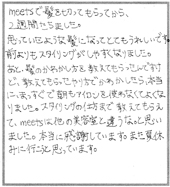 meetsで髪を切ってもらってから、
2週間たちました。
思っていたような髪になってとてもうれしいです。
前よりもスタイリングがしやすくなりました。
あと、髪のかわかし方を教えてもらったんですけ
ど、教えてもらったやり方でかわかしたら、本当
にまっすぐで朝もアイロンを使わなくてよくな
りました。スタイリングの仕方まで教えてもらえ
て、meetsは他の美容室と違うなっと思い
ました。本当に感謝しています。また夏休
みに行こうと思っています。